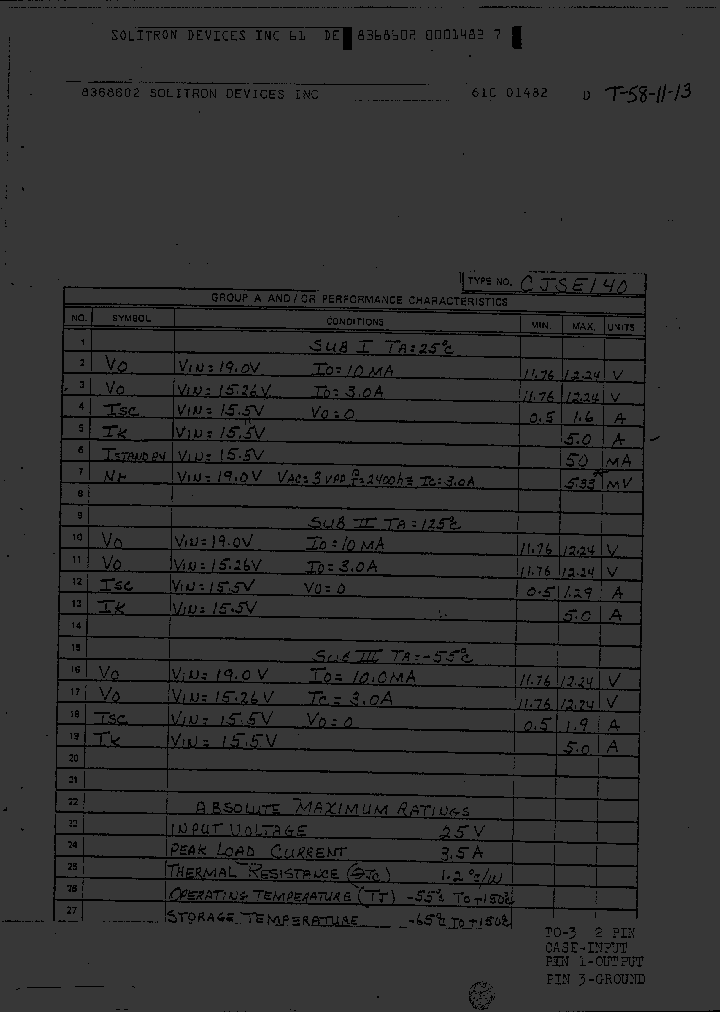 SOLITRON DEVICES INC 61 DE 8368602 0001482 7
8368602 SOLITRON DEVICES INC 61C 01482 D T-58-11-13
TYPE NO. CJSE140
GROUP A AND/OR PERFORMANCE CHARACTERISTICS
NO. SYMBOL CONDITIONS MIN. MAX. UNITS
1 SUB I TA=25°C
2 VO VIN=19.0V IO=10 MA 11.76 12.24 V
3 VO VIN=15.26V IO=3.0A 11.76 12.24 V
4 ISC VIN=15.5V VO=0 0.5 1.6 A
5 IK VIN=15.5V 5.0 A
6 ISTANDBY VIN=15.5V 50 MA
7 VIN=19.0V VAC=3VPP f=2400hz IC=3.0A 5.33 MV
8
9 SUB II TA=125°C
10 VO VIN=19.0V IO=10 MA 11.76 12.24 V
11 VO VIN=15.26V IO=3.0A 11.76 12.24 V
12 ISC VIN=15.5V VO=0 0.5 1.29 A
13 IK VIN=15.5V 5.0 A
14
15 SUB III TA=-55°C
16 VO VIN=19.0V IO=10.0MA 11.76 12.24 V
17 VO VIN=15.26V IC=3.0A 11.76 12.24 V
18 ISC VIN=15.5V VO=0 0.5 1.9 A
19 IK VIN=15.5V 5.0 A
20
21
22 ABSOLUTE MAXIMUM RATINGS
23 INPUT VOLTAGE 25V
24 PEAK LOAD CURRENT 3.5A
25 THERMAL RESISTANCE (ΘJC) 1.2°C/W
26 OPERATING TEMPERATURE (TJ) -55°C TO +150°C
27 STORAGE TEMPERATURE -65°C TO +150°C
TO-3 2 PIN
CASE-INPUT
PIN 1-OUTPUT
PIN 3-GROUND